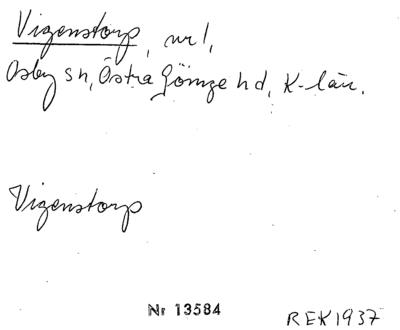 Vigenstorp, nr 1,
Osby sn, Östra Göinge hd, K-län.
Vigenstorp
Nr 13584
REK1937